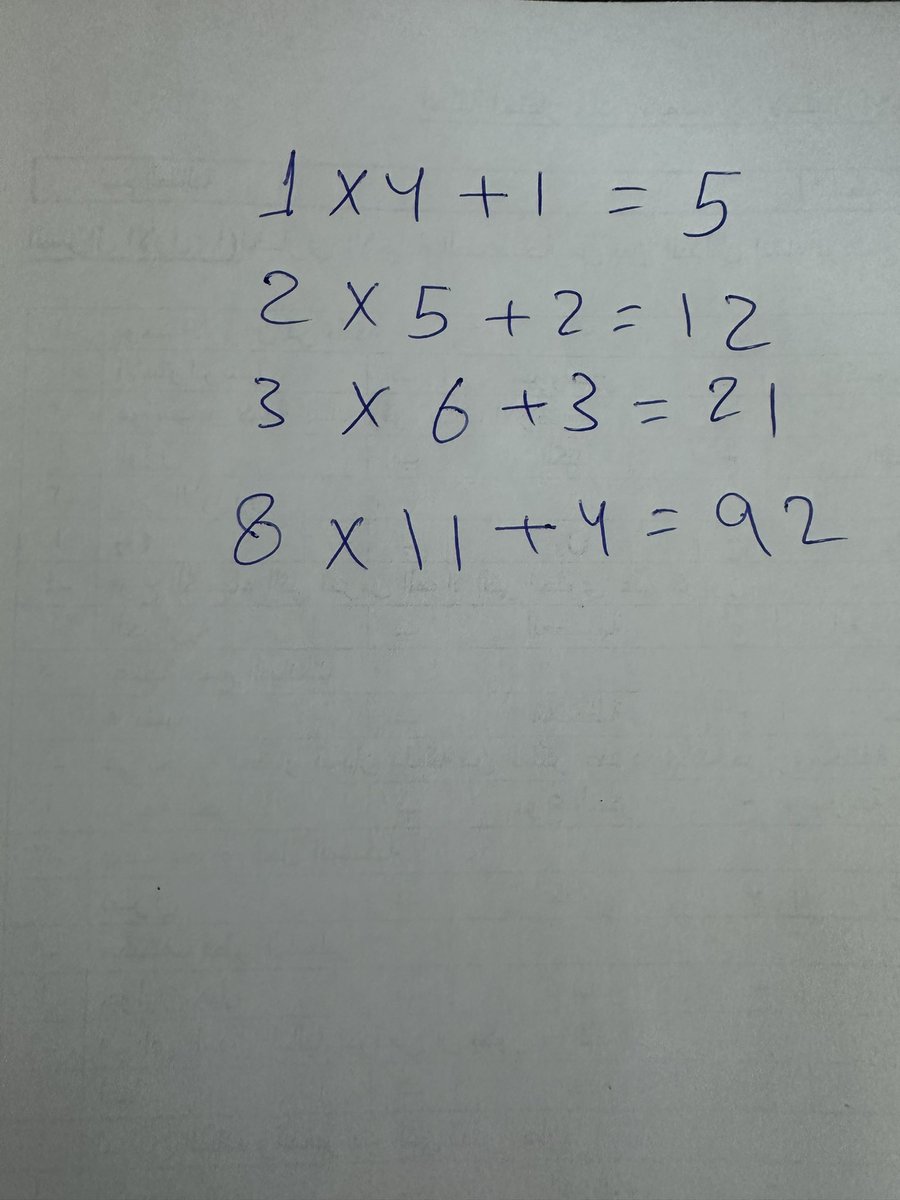 1 × 4 + 1 = 5
2 × 5 + 2 = 12
3 × 6 + 3 = 21
8 × 11 + 4 = 92